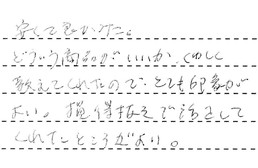 安くて良かった。
どういう商品がいいか、くわしく
教えてくれたので、とても印象が
よい。損得抜きで話をして
くれたところがよい。